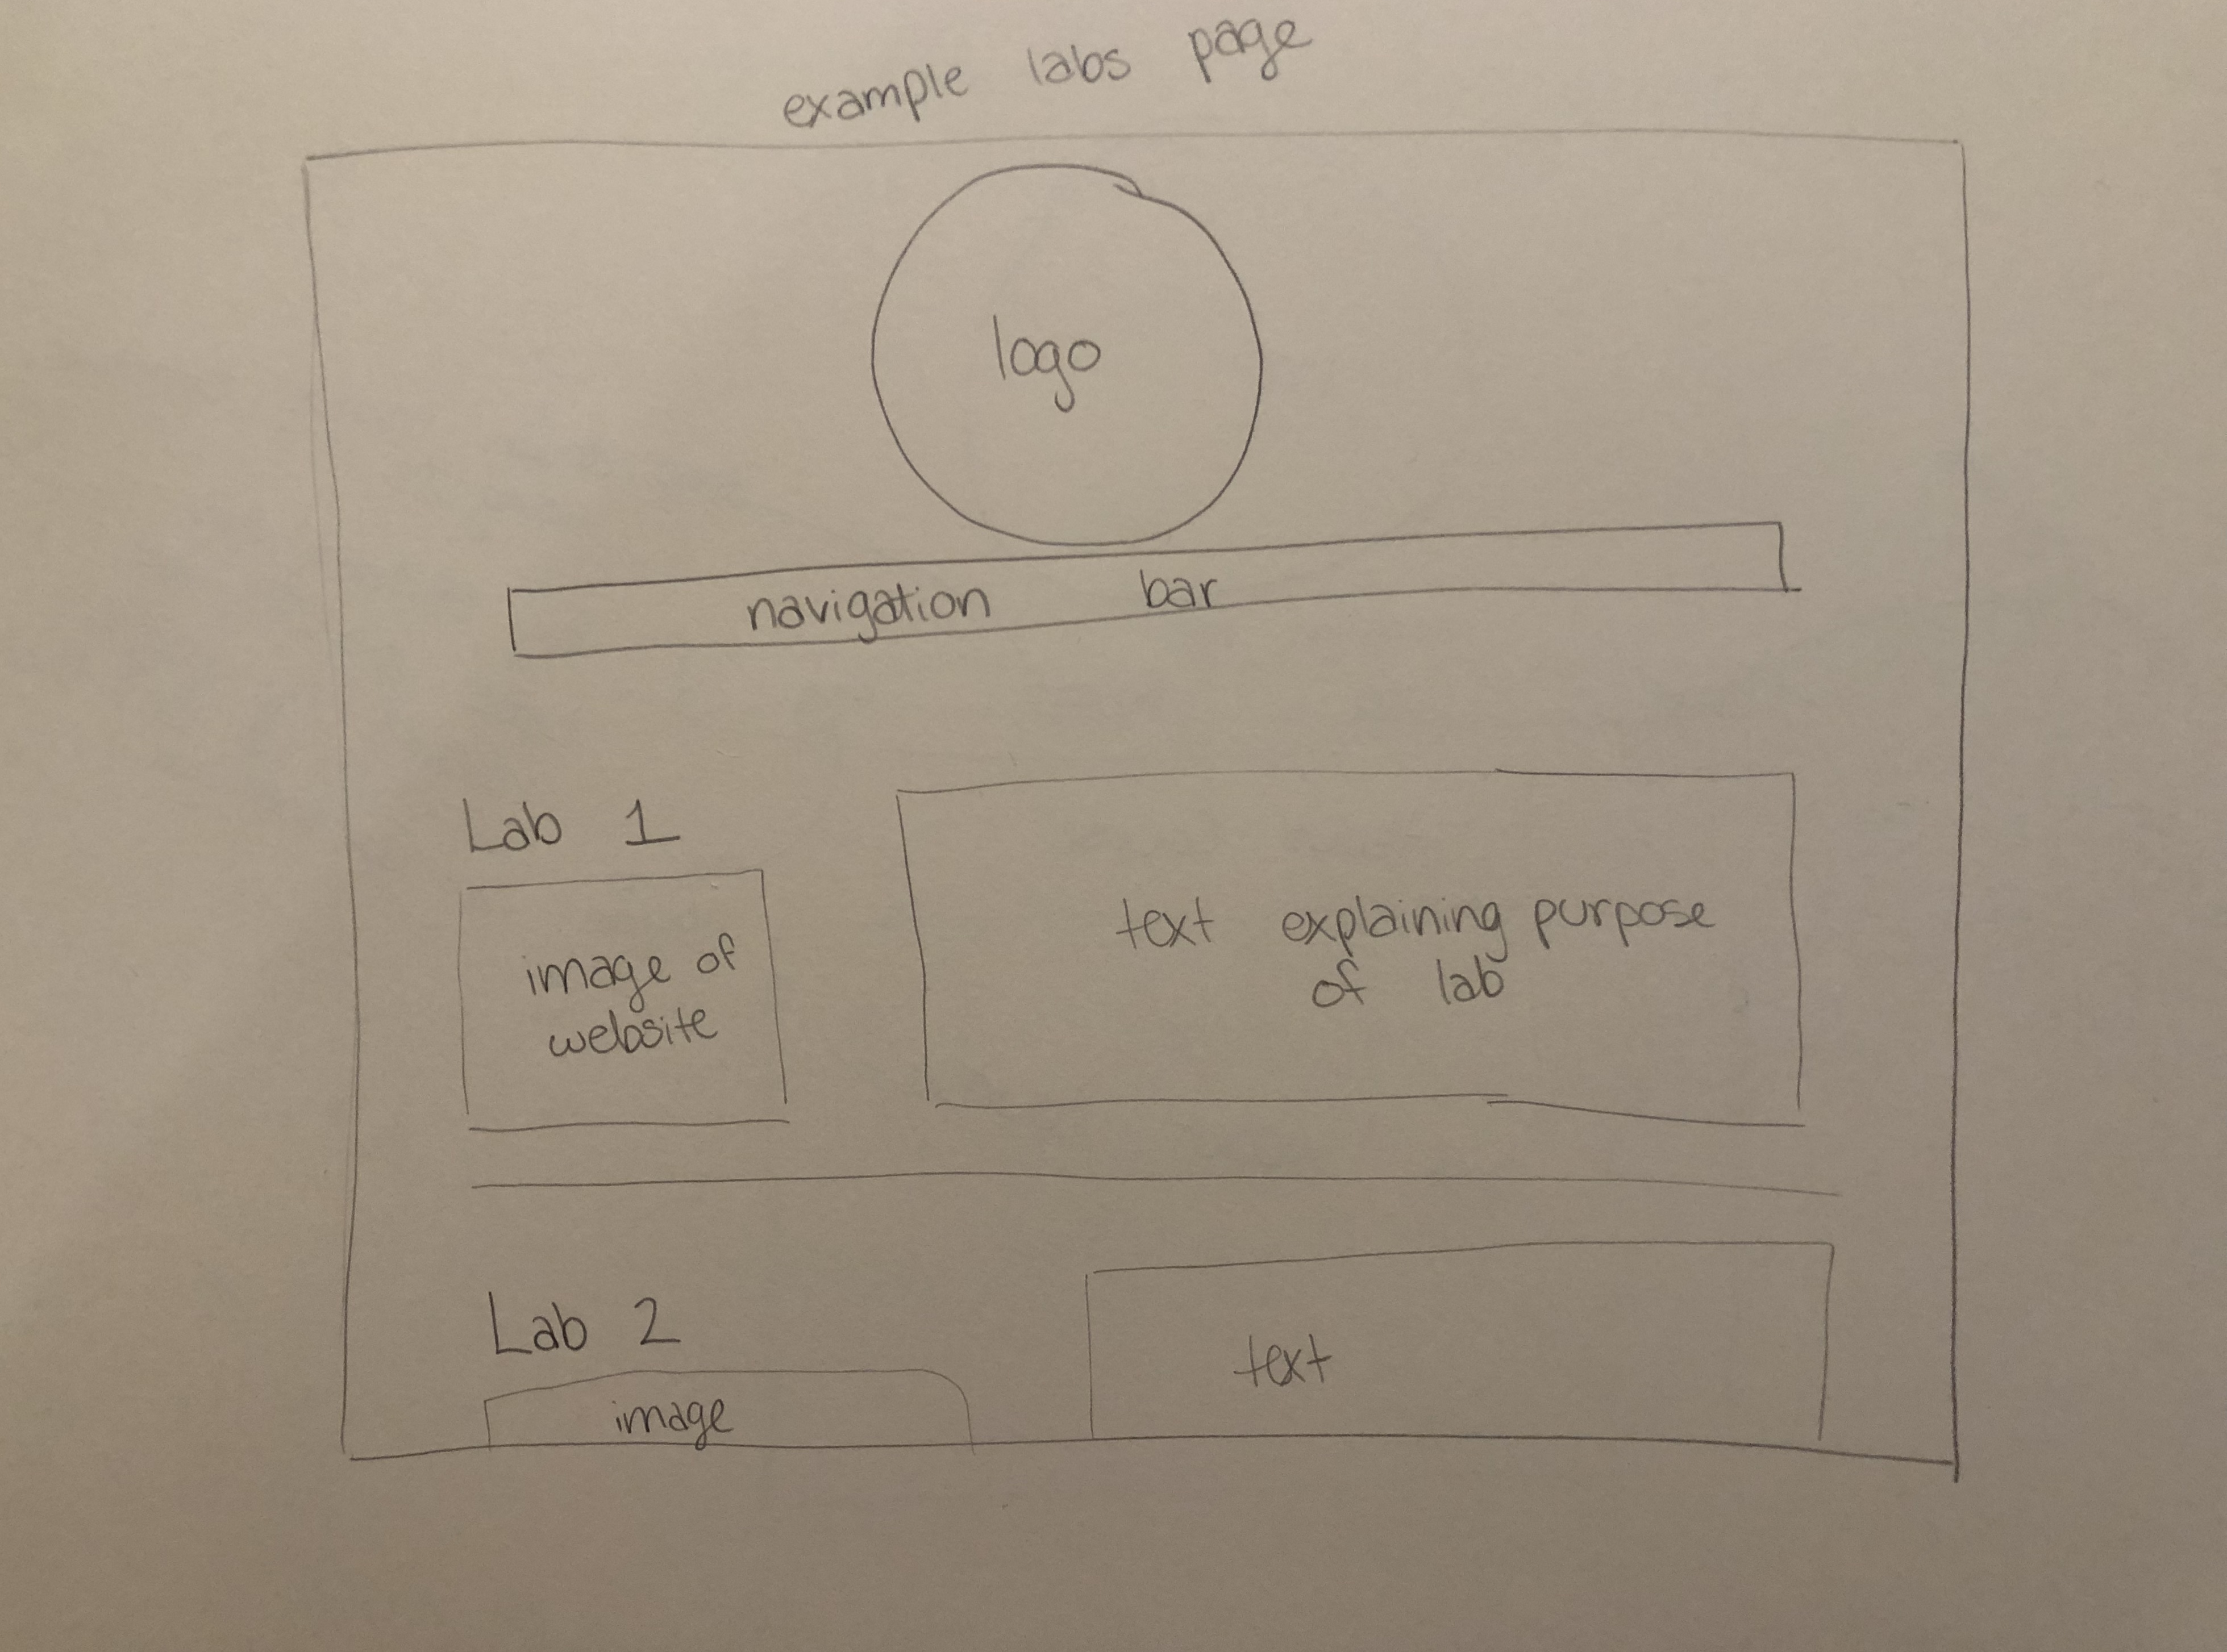 example labs page
logo
navigation bar
Lab 1
image of
website
text explaining purpose
of lab
Lab 2
image
text